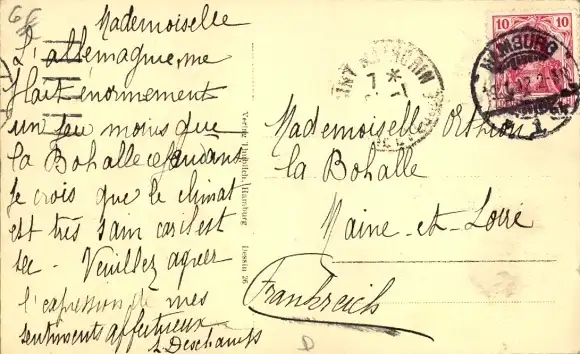 Mademoiselle
L'allemagne me
plait énormement
un peu moins que
la Bohalle cependant
Je crois que le climat
est très sain car c'est
sec - Veuillez agréer
l'expression de mes
sentiments affectueux
L Deschamps
Verlag
Hamburg Dessin 26
10 10
HAMBURG
1
7 *
Mademoiselle
La Bohalle
Maine-et-Loire
Frankreich